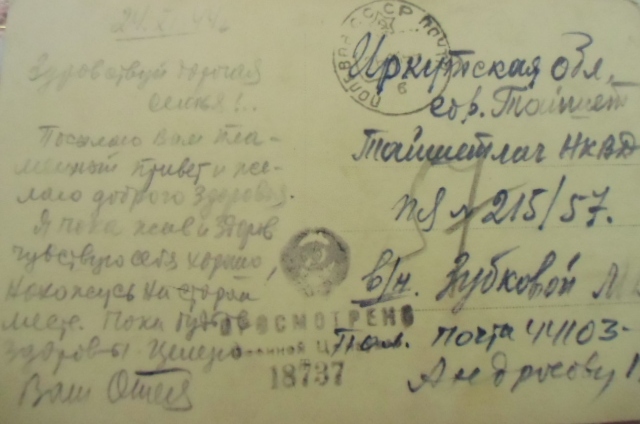 24. XI 44г.
Здравствуй дорогая
семья!..
Посылаю Вам пла-
менный привет и же-
лаю доброго здоровья.
Я пока жив и здоров
чувствую себя хорошо,
нахожусь на старом
месте. Пока будьте
здоровы. Целую
Ваш Отец
ПОЛЕВАЯ ПОЧТА СССР
Иркутская обл,
гор. Тайшет
Тайшетлаг НКВД
пя № 215/57.
в/н. Зубковой М
ПРОСМОТРЕНО
Военной Цензурой
18737
Пол. почта 44103-
Андросову